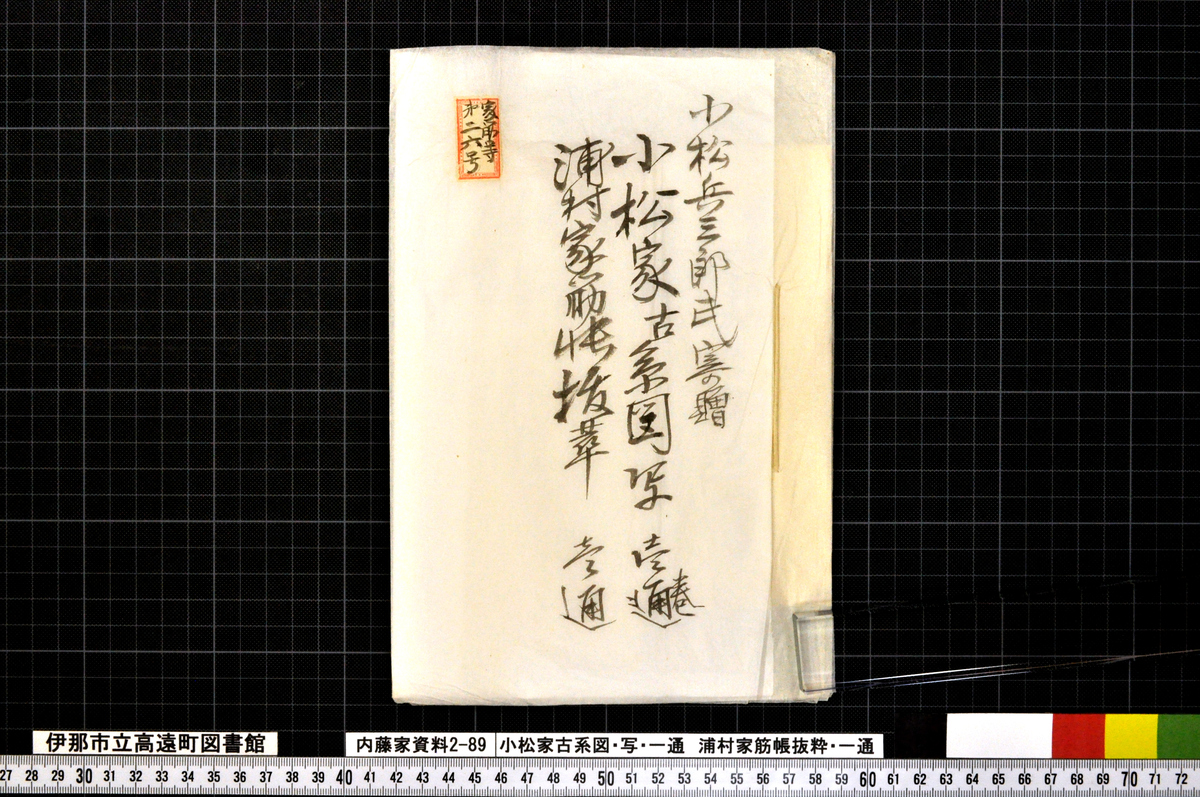 小松兵三郎氏寄贈
小松家古系図写 壱通
巻
浦村家筋帳抜萃 壱通
第二六号
伊那市立高遠町図書館
内藤家資料2-89
小松家古系図・写・一通 浦村家筋帳抜粋・一通
27 28 29 30 31 32 33 34 35 36 37 38 39 40 41 42 43 44 45 46 47 48 49 50 51 52 53 54 55 56 57 58 59 60 61 62 63 64 65 66 67 68 69 70 71 72